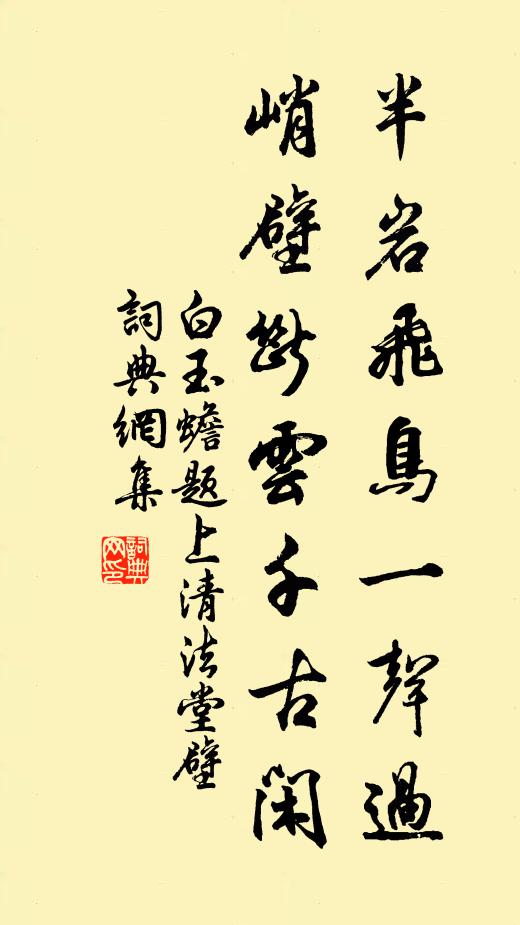 半岩飛鳥一聲過
峭壁斷雲千古閑
白玉蟾題上清法堂壁
詞典網集
詞典網印